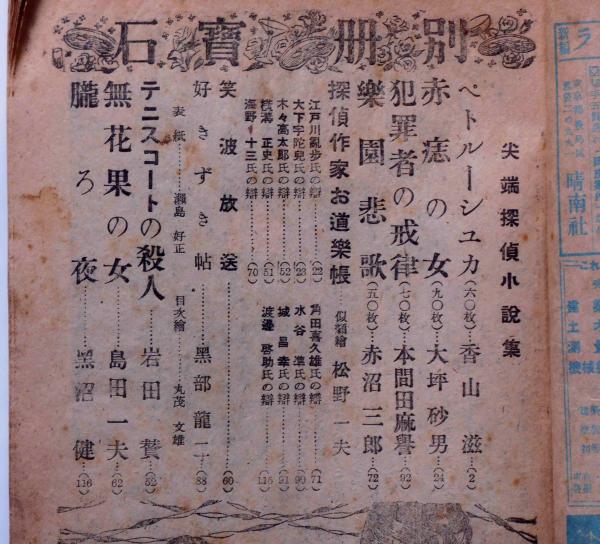 別册寶石
尖端探偵小説集
ペトルーシュカ(六〇枚)……香山滋…(2)
赤痣の女(九〇枚)…大坪砂男…(24)
犯罪者の戒律(七〇枚)…本間田麻譽…(92)
樂園悲歌(五〇枚)…赤沼三郎…(72)
探偵作家お道樂帳……似顔繪 松野一夫
江戸川亂歩氏の辯……(22)
大下宇陀兒氏の辯……(23)
木々高太郎氏の辯……(52)
横溝正史氏の辯……(51)
海野十三氏の辯……(70)
角田喜久雄氏の辯……71
水谷準氏の辯……90
城昌幸氏の辯……91
渡邊啓助氏の辯……115
笑波放送……(60)
好きずき帖……黑部龍二…(88)
表紙……瀬島好正
目次繪……丸茂文雄
テニスコートの殺人……岩田賛…(52)
無花果の女……島田一夫…(62)
朧ろ夜……黑沼健…(116)
晴南社